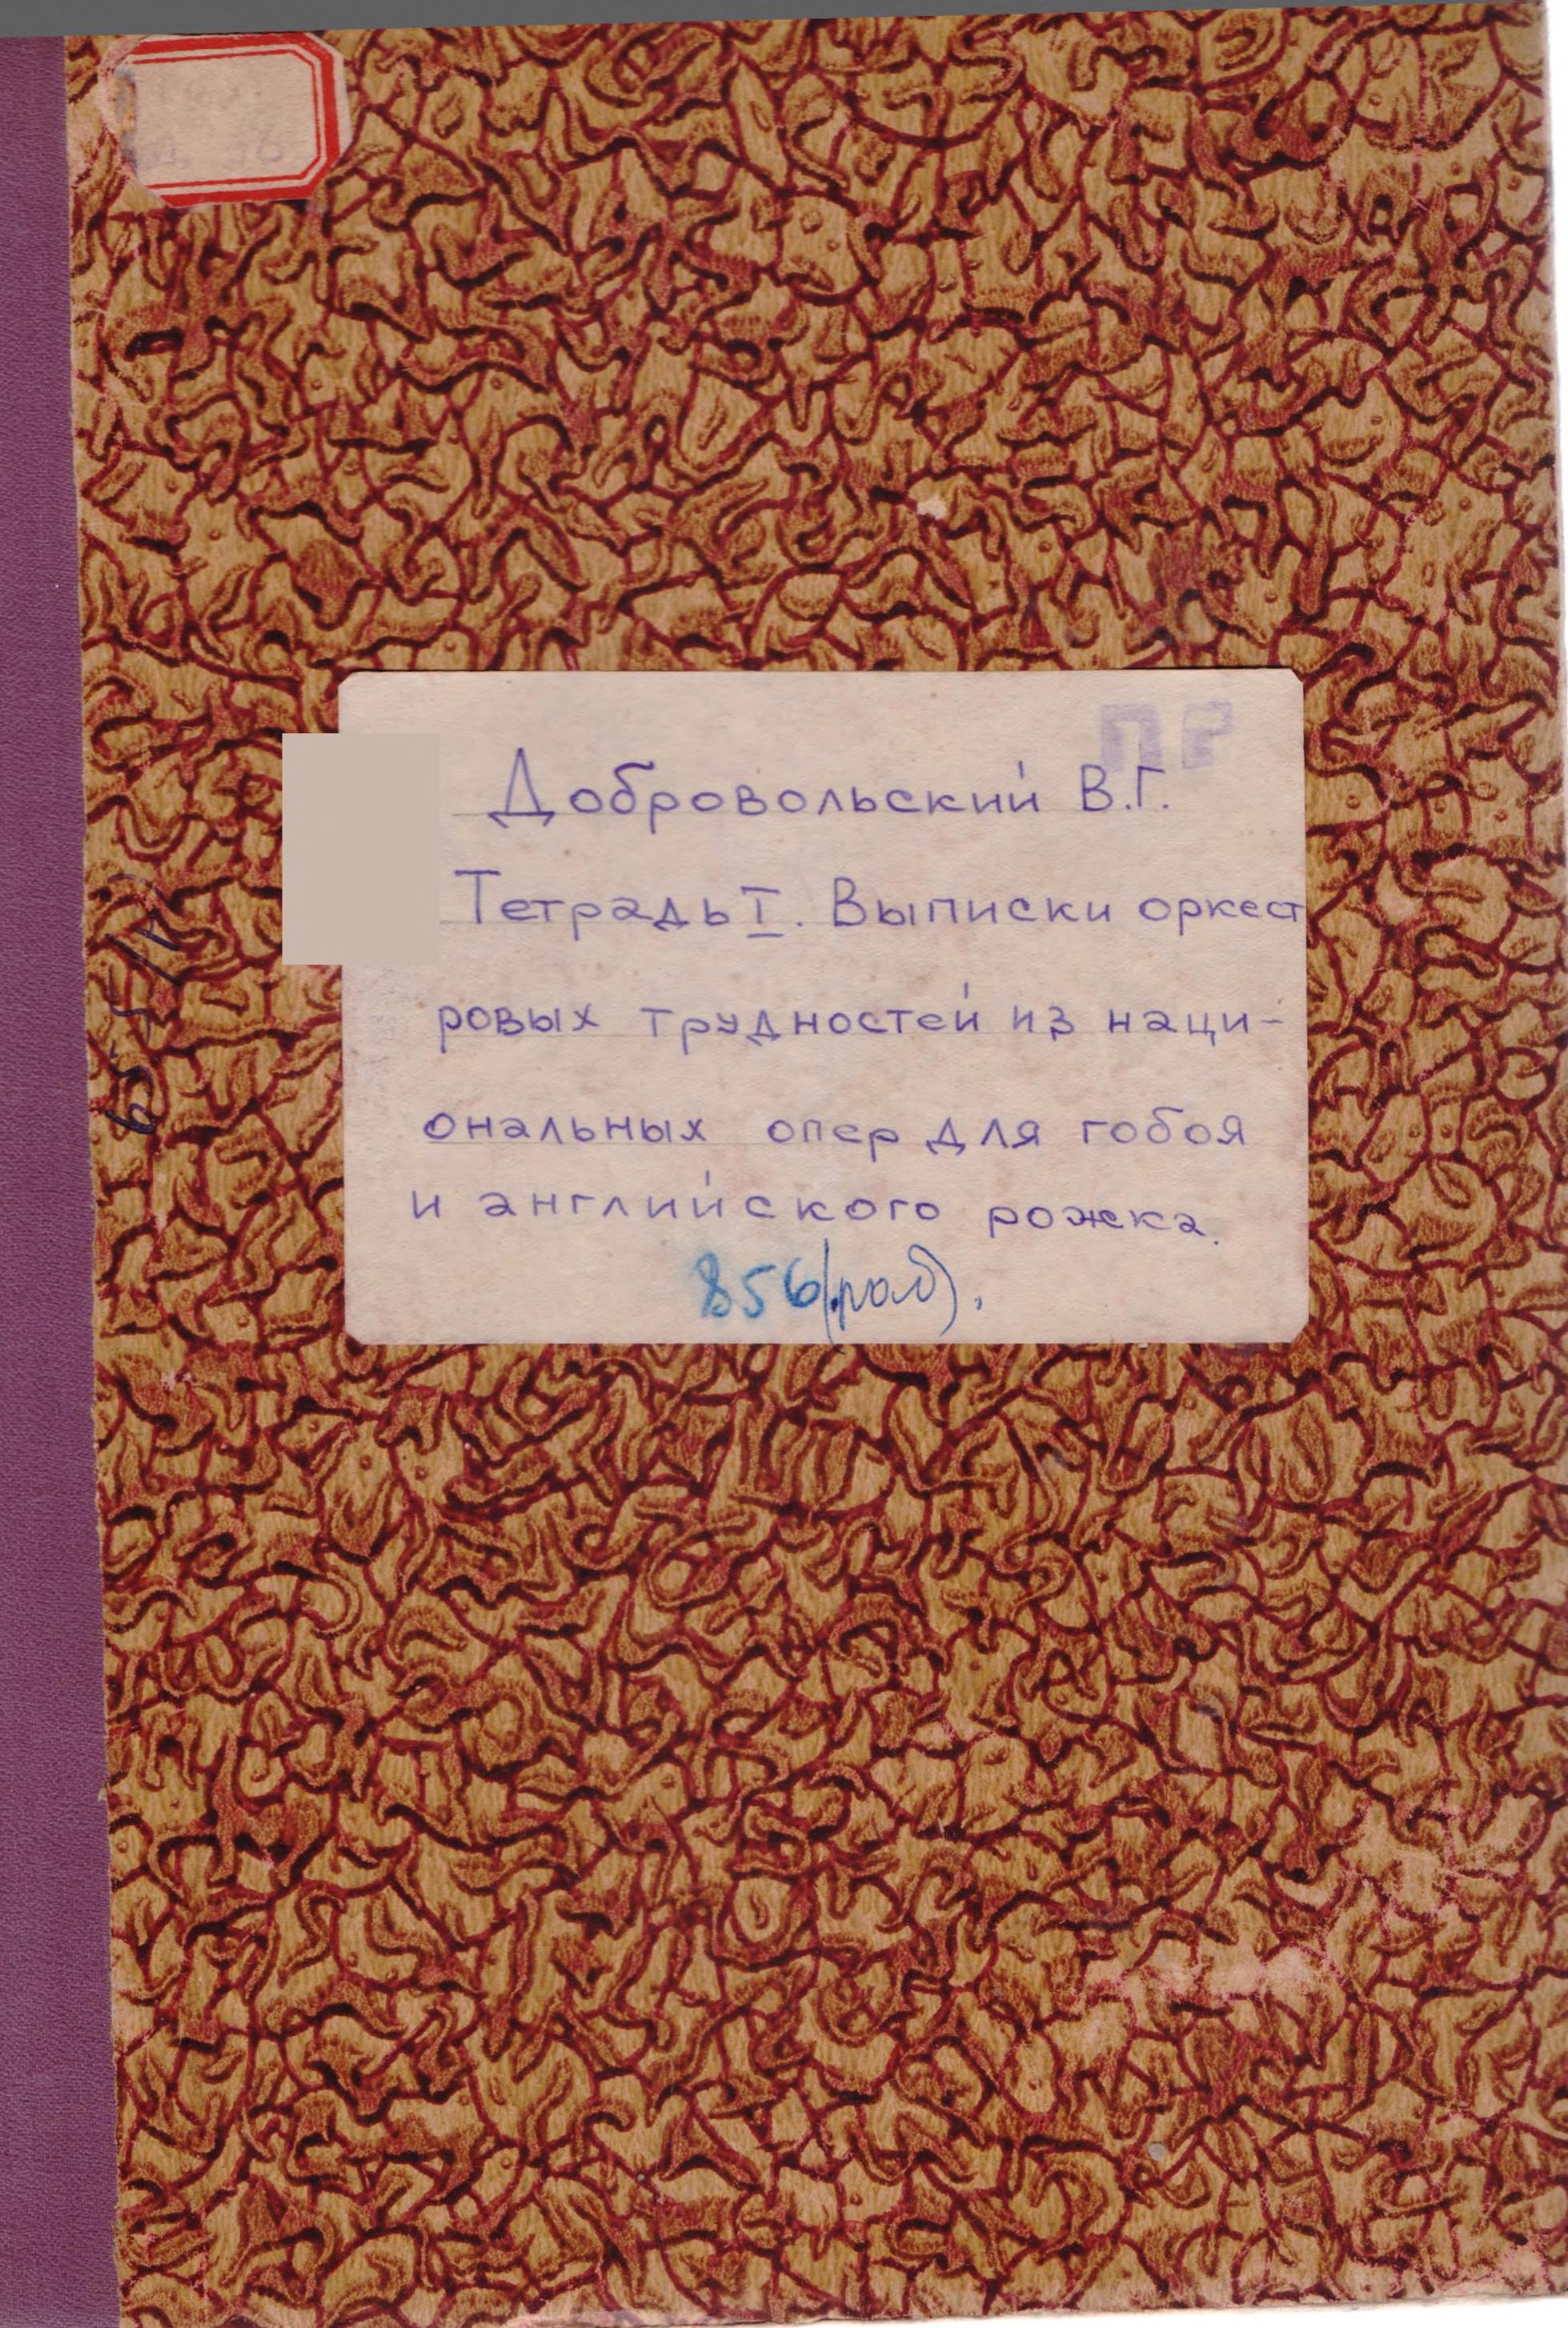 ПР
Добровольский В.Г.
Тетрадь I. Выписки оркест
ровых трудностей из наци-
ональных опер для гобоя
и английского рожка.
856